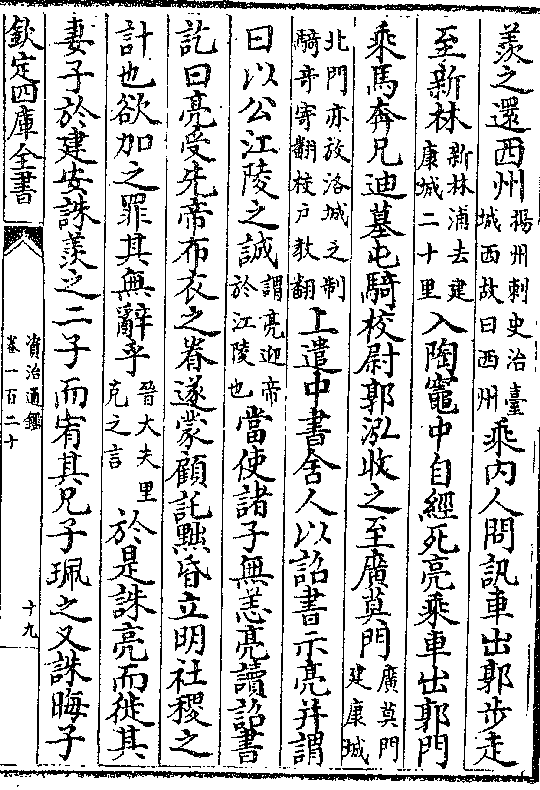 羨之還西州揚州刺史治臺城西故曰西州乘內人問訊車出郭步走
至新林新林浦去建康城二十里入陶竈中自經死亮乘車出郭門
乘馬奔兄迪墓屯騎校尉郭泓收之至廣莫門廣莫門建康城
北門亦放洛城之制騎奇寄翻校戶教翻上遣中書舍人以詔書示亮并謂
曰以公江陵之誠謂亮迎帝於江陵也當使諸子無恙亮讀詔書
訖曰亮受先帝布衣之眷遂蒙顧託黜昏立明社稷之
計也欲加之罪其無辭乎晉大夫里克之言於是誅亮而徙其
妻子於建安誅羨之二子而宥其兄子珮之又誅晦子
欽定四庫全書
資治通鑑
卷一百二十
十九